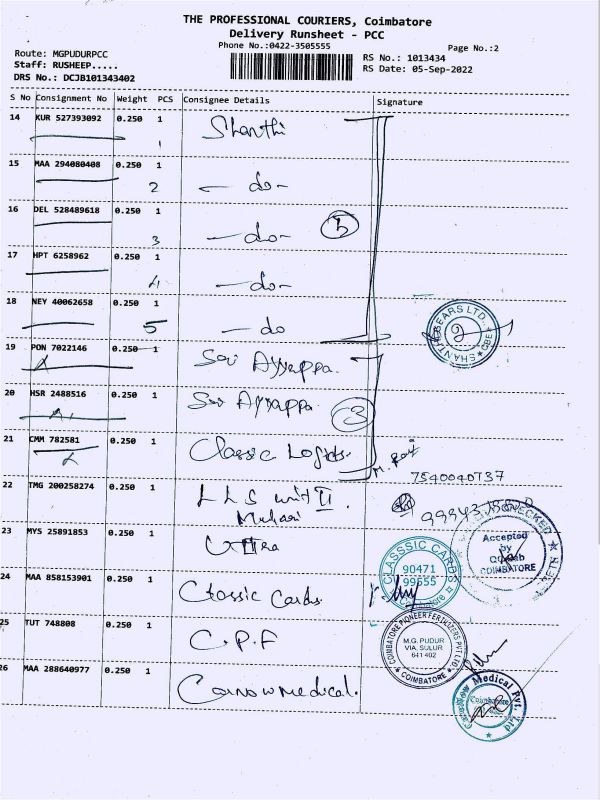 THE PROFESSIONAL COURIERS, Coimbatore
Delivery Runsheet - PCC
Phone No.:0422-3505555
Page No.:2
Route: MGPUDURPCC
Staff: RUSHEEP.....
DRS No.: DCJB101343402
RS No.: 1013434
RS Date: 05-Sep-2022
S No Consignment No Weight PCS Consignee Details Signature
14 KUR 527393092 0.250 1 Shanthi
1
15 MAA 294080408 0.250 1 - do -
2
16 DEL 528489618 0.250 1 - do - 5
3
17 HPT 6258962 0.250 1 - do -
4
18 NEY 40062658 0.250 1 - do
5
SHANTHI GEARS LTD. CBE
19 PON 7022146 0.250 1 Sri Ayyappa.
20 HSR 2488516 0.250 1 Sri Ayyappa. 3
21 CMM 782581 0.250 1 Classic
7540040737
22 TMG 200258274 0.250 1 LLS unit II.
23 MYS 25891853 0.250 1
CHECKED
Accepted
by
COIMBATORE
CLASSSIC CARDS
90471
99555
24 MAA 858153901 0.250 1 Classic Cards.
25 TUT 748808 0.250 1 C.P.F
COIMBATORE PIONEER FERTILIZERS PVT LTD
M.G. PUDUR
VIA. SULUR
641 402
COIMBATORE
26 MAA 288640977 0.250 1 Cornow Medical.
Medical Pvt. Ltd
Coimbatore